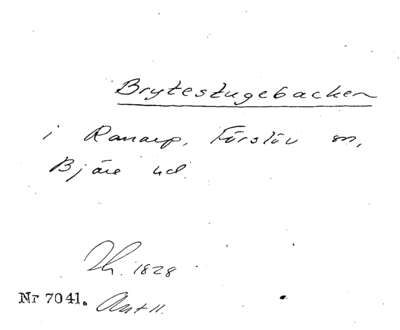 Brytestugebacken
i Ranarp, Förslöv sn,
Bjäre hd.
Th. 1828
Nr 7041. Ant 11.